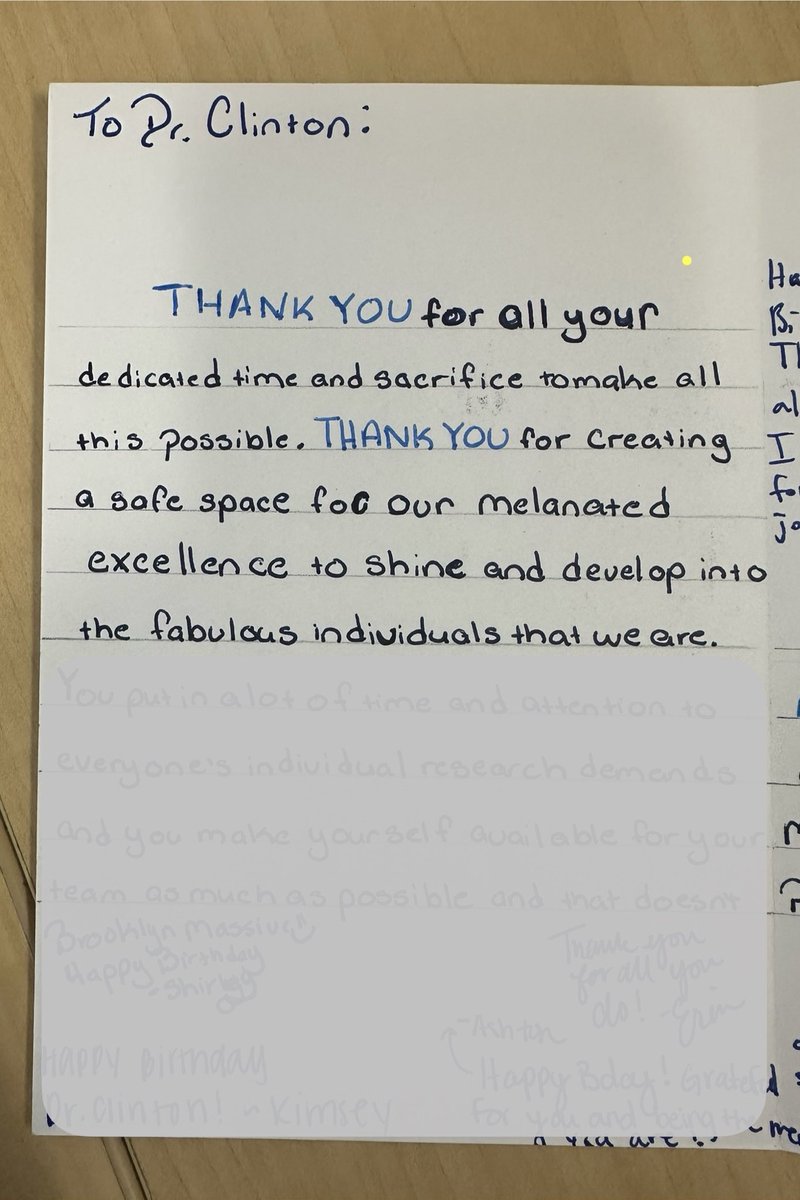 To Dr. Clinton:
THANK YOU for all your
dedicated time and sacrifice tomake all
this possible. THANK YOU for creating
a safe space for our melanated
excellence to shine and develop into
the fabulous individuals that we are.
You put in a lot of time and attention to
everyone's individual research demands
and you make yourself available for your
team as much as possible and that doesn't
Brooklyn Massive
Happy Birthday
Thank you
for all you
do! -Erin
-Ashton
Happy Birthday
Dr. Clinton! ~Kimsey
Happy Bday! Grateful
for you and being the